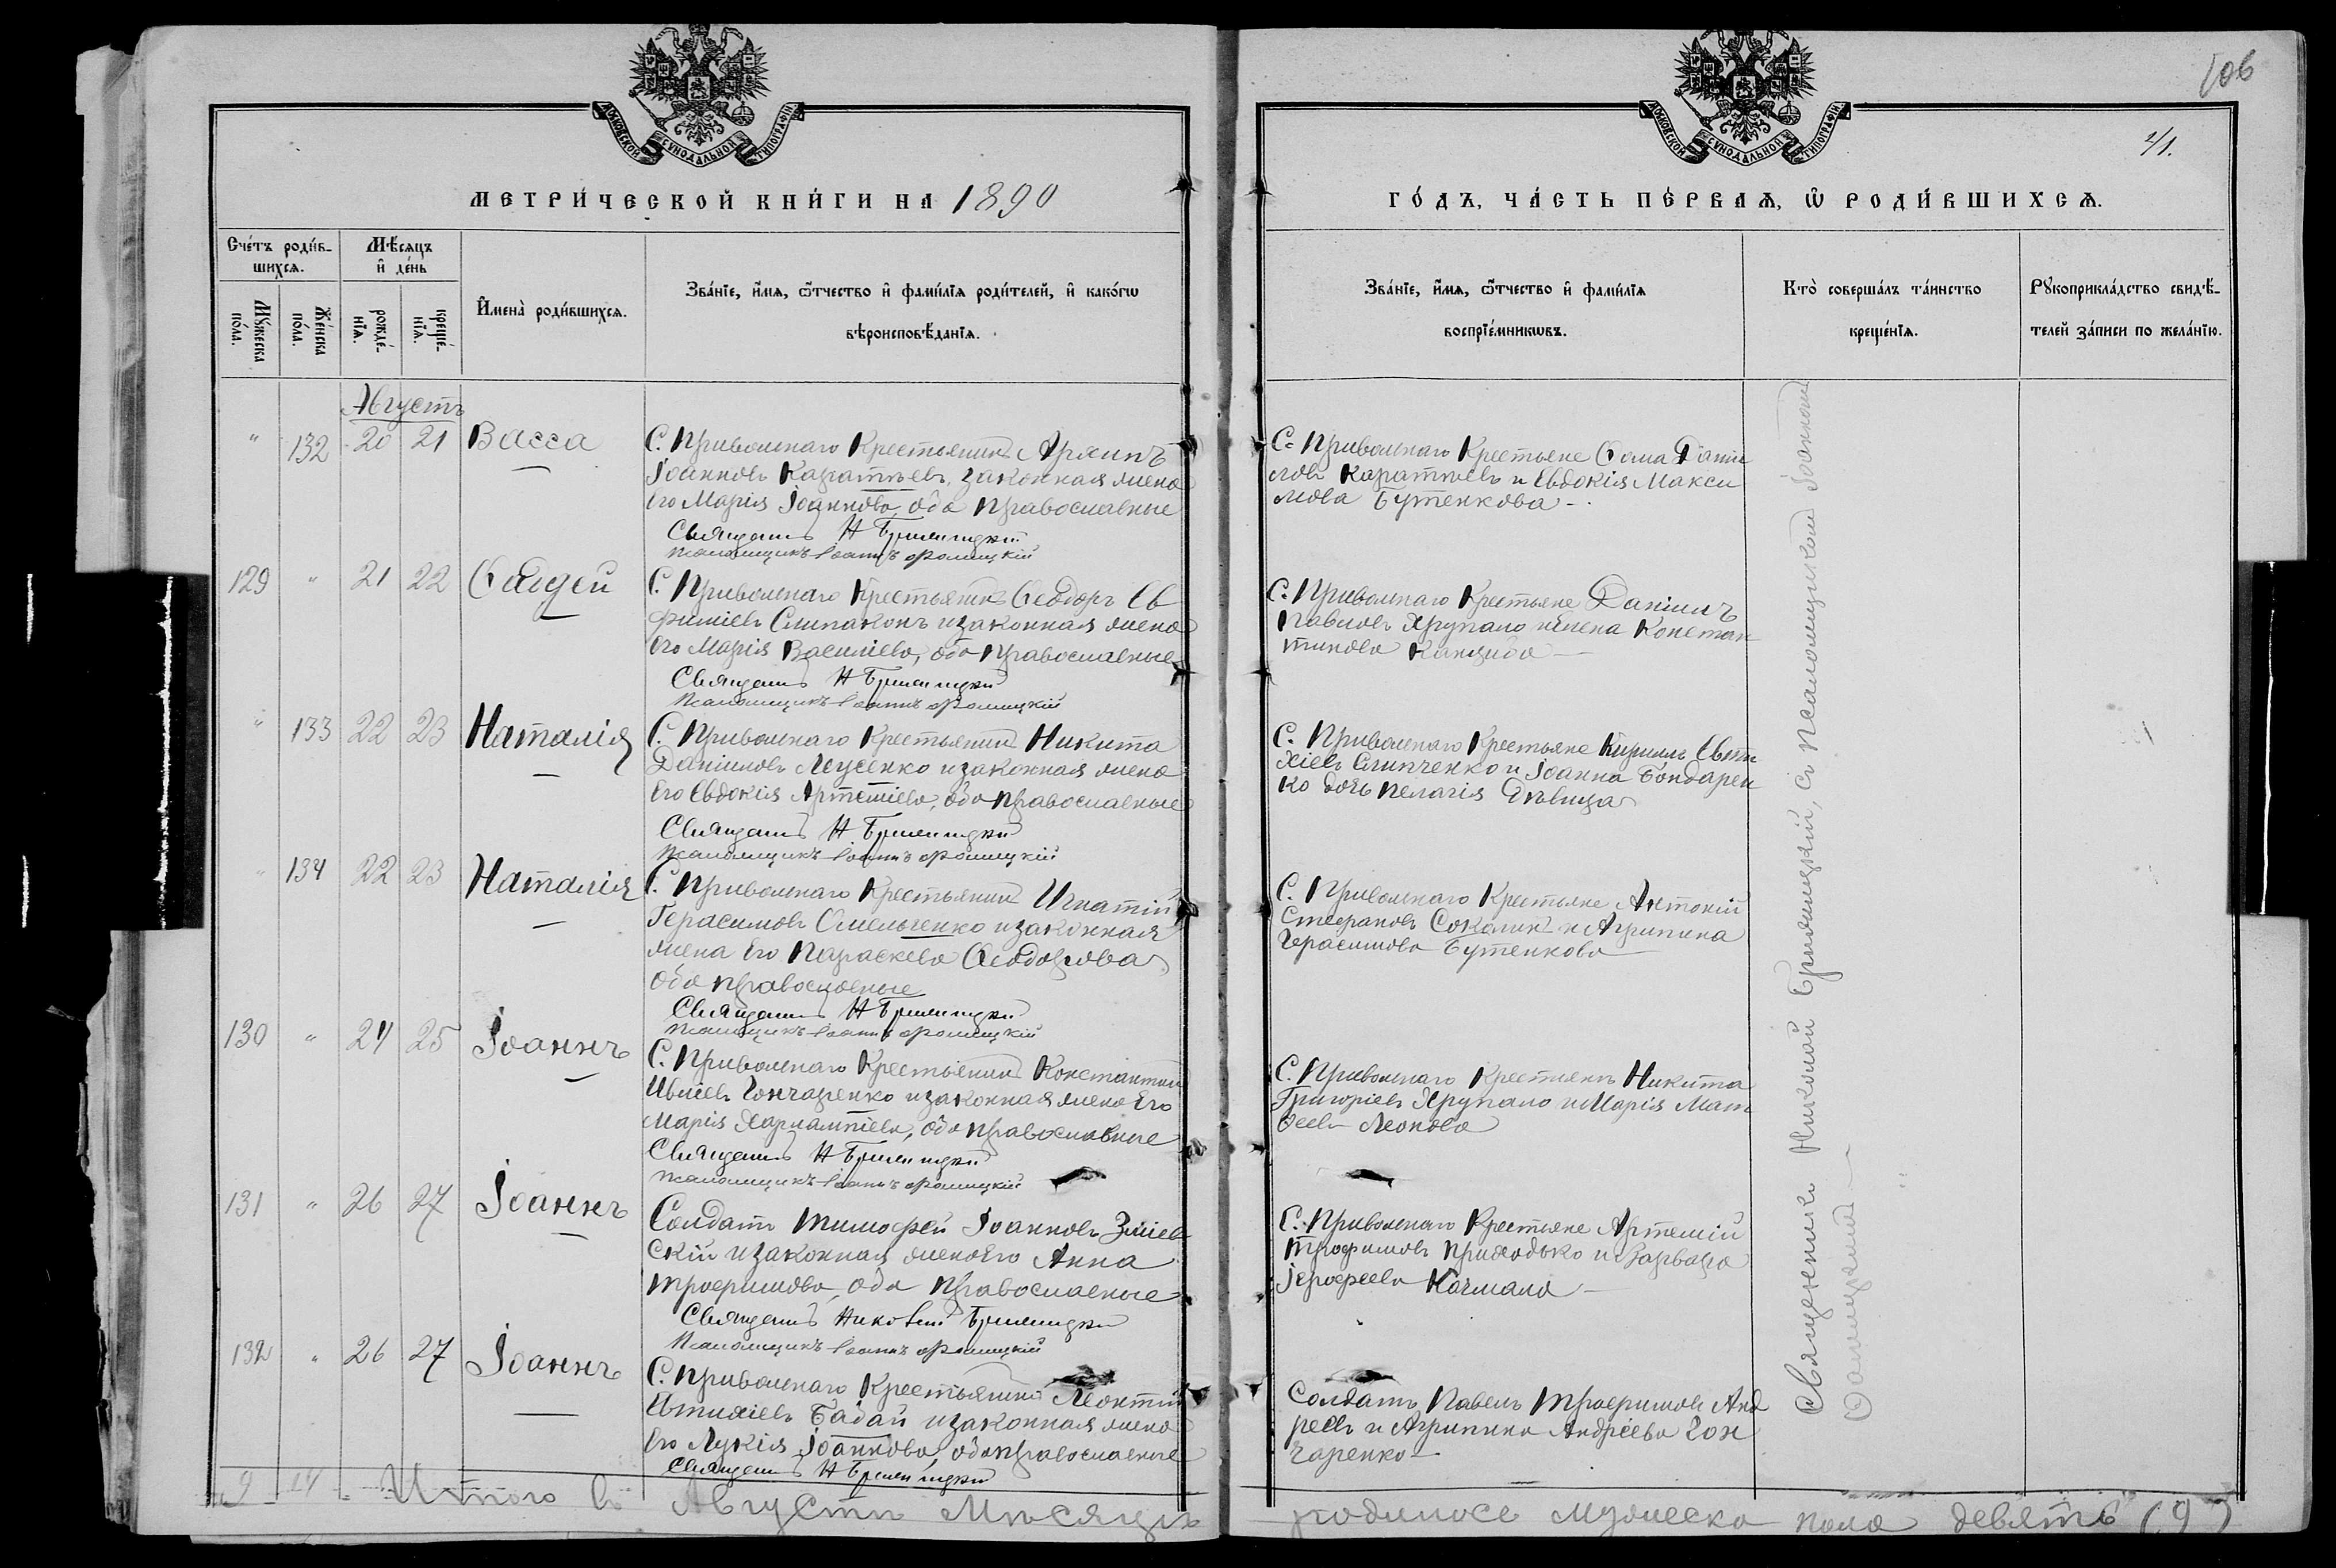 106
2/1.
МОСКОВСКОЙ СѴНОДАЛЬНОЙ ТИПОГРАФІИ
МОСКОВСКОЙ СѴНОДАЛЬНОЙ ТИПОГРАФІИ
МЕТРИ́ЧЕСКОЙ КНИ́ГИ НА 1890
ГО́ДЪ, ЧА́СТЬ ПЕ́РВАѦ, Ѡ҆ РОДИ́ВШИХСѦ.
Сче́тъ роди́в-
шихсѧ.
Мѣ́сяцъ
и҆ де́нь
Мꙋ́жеска
по́ла.
Же́нска
по́ла.
рожде́-
нїѧ.
креще́-
нїѧ.
И҆мена̀ роди́вшихсѧ.
Зва́нїе, и҆́мѧ, ѻ҆́тчество и҆ фами́лїѧ роди́телей, и҆ како́гѡ
вѣроисповѣ́данїѧ.
Зва́нїе, и҆́мѧ, ѻ҆́тчество и҆ фами́лїѧ
воспрїе́мникѡвъ.
Кто̀ соверша́лъ та́инство
креще́нїѧ.
Рꙋкоприкла́дство свидѣ́-
телей за́писи по жела́нїю.
Августъ
" 132 20 21 Васса
С. Привольнаго Крестьянинъ Архипъ
Іоанновъ Каратѣевъ, законная жена
его Марія Іоаннова, оба православные
Священникъ Н
Псаломщикъ Іоаннъ Ѳомицкій
С. Привольнаго Крестьяне Ѳома Дани
ловъ Каратѣевъ и Евдокія Макси
мова Бутенкова -
129 " 21 22 Ѳаддей
С. Привольнаго Крестьянинъ Ѳеодоръ Ев
фиміевъ Слипаконъ и законная жена
его Марія Василіева, оба православные
Священникъ Н
Псаломщикъ Іоаннъ Ѳомицкій
С. Привольнаго Крестьяне Даніилъ
Павловъ Хрупало и Елена Констан
тинова
" 133 22 23 Наталія
С. Привольнаго Крестьянинъ Никита
Даніиловъ Леусенко и законная жена
его Евдокія Артеміева, оба православные
Священникъ Н
Псаломщикъ Іоаннъ Ѳомицкій
С. Привольнаго Крестьяне Кириллъ Евти
хіевъ Слипченко и Іоанна Бондарен
ко дочь Пелагія дѣвица
" 134 22 23 Наталія
С. Привольнаго Крестьянинъ Игнатій
Герасимовъ Омельченко и законная
жена его Параскева Ѳеодорова
оба православные
Священникъ Н
Псаломщикъ Іоаннъ Ѳомицкій
С. Привольнаго Крестьяне Антоній
Стефановъ Соколикъ и Агрипина
Герасимова Бутенкова
130 " 24 25 Іоаннъ
С. Привольнаго Крестьянинъ Константинъ
Гончаренко и законная жена его
Марія Харлампіева, оба православные
Священникъ Н
Псаломщикъ Іоаннъ Ѳомицкій
С. Привольнаго Крестьяне Никита
Григоріевъ Хрупало и Марія Мат
ѳеева Леонова
131 " 26 27 Іоаннъ
Солдатъ Тимофей Іоанновъ Зміев
скій и законная жена его Анна
Трофимова, оба православные
Священникъ Николай
Псаломщикъ Іоаннъ Ѳомицкій
С. Привольнаго Крестьяне Артемій
Трофимовъ Приходько и Варвара
Іерофеева Качмала
132 " 26 27 Іоаннъ
С. Привольнаго Крестьянинъ Леонтій
Евтихіевъ Бабай и законная жена
его Лукія Іоаннова, оба православные
Священникъ Н
Солдатъ Павелъ Трофимовъ Анд
реевъ и Агрипина Андреева Гон
чаренко
Священникъ Николай съ псаломщикомъ Іоанномъ
Ѳомицкимъ
9 14 Итого въ Августѣ Мѣсяцѣ родилось мужеска пола девять (9)